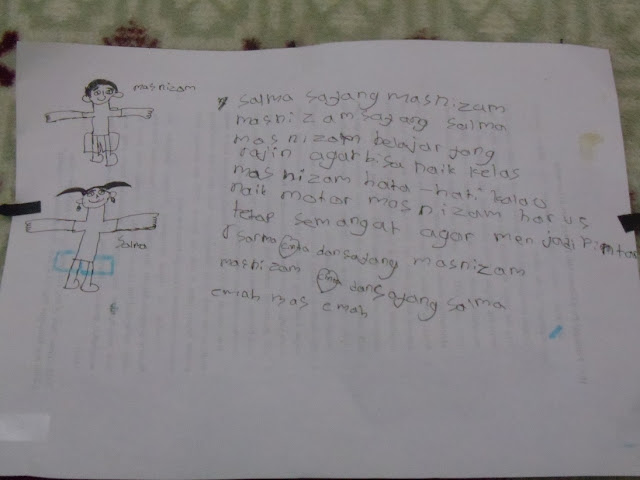 masnizam
salma sajang masnizam
masnizam sajang salma
masnizam belajar jang
rajin agar bisa naik kelas
masnizam hata-hati kalao
naik motor masnizam harus
tetap semangat agar menjadi pintar
salma
salma cinta dan sajang masnizam
masnizam cinta dan sajang salma
emah mas emah